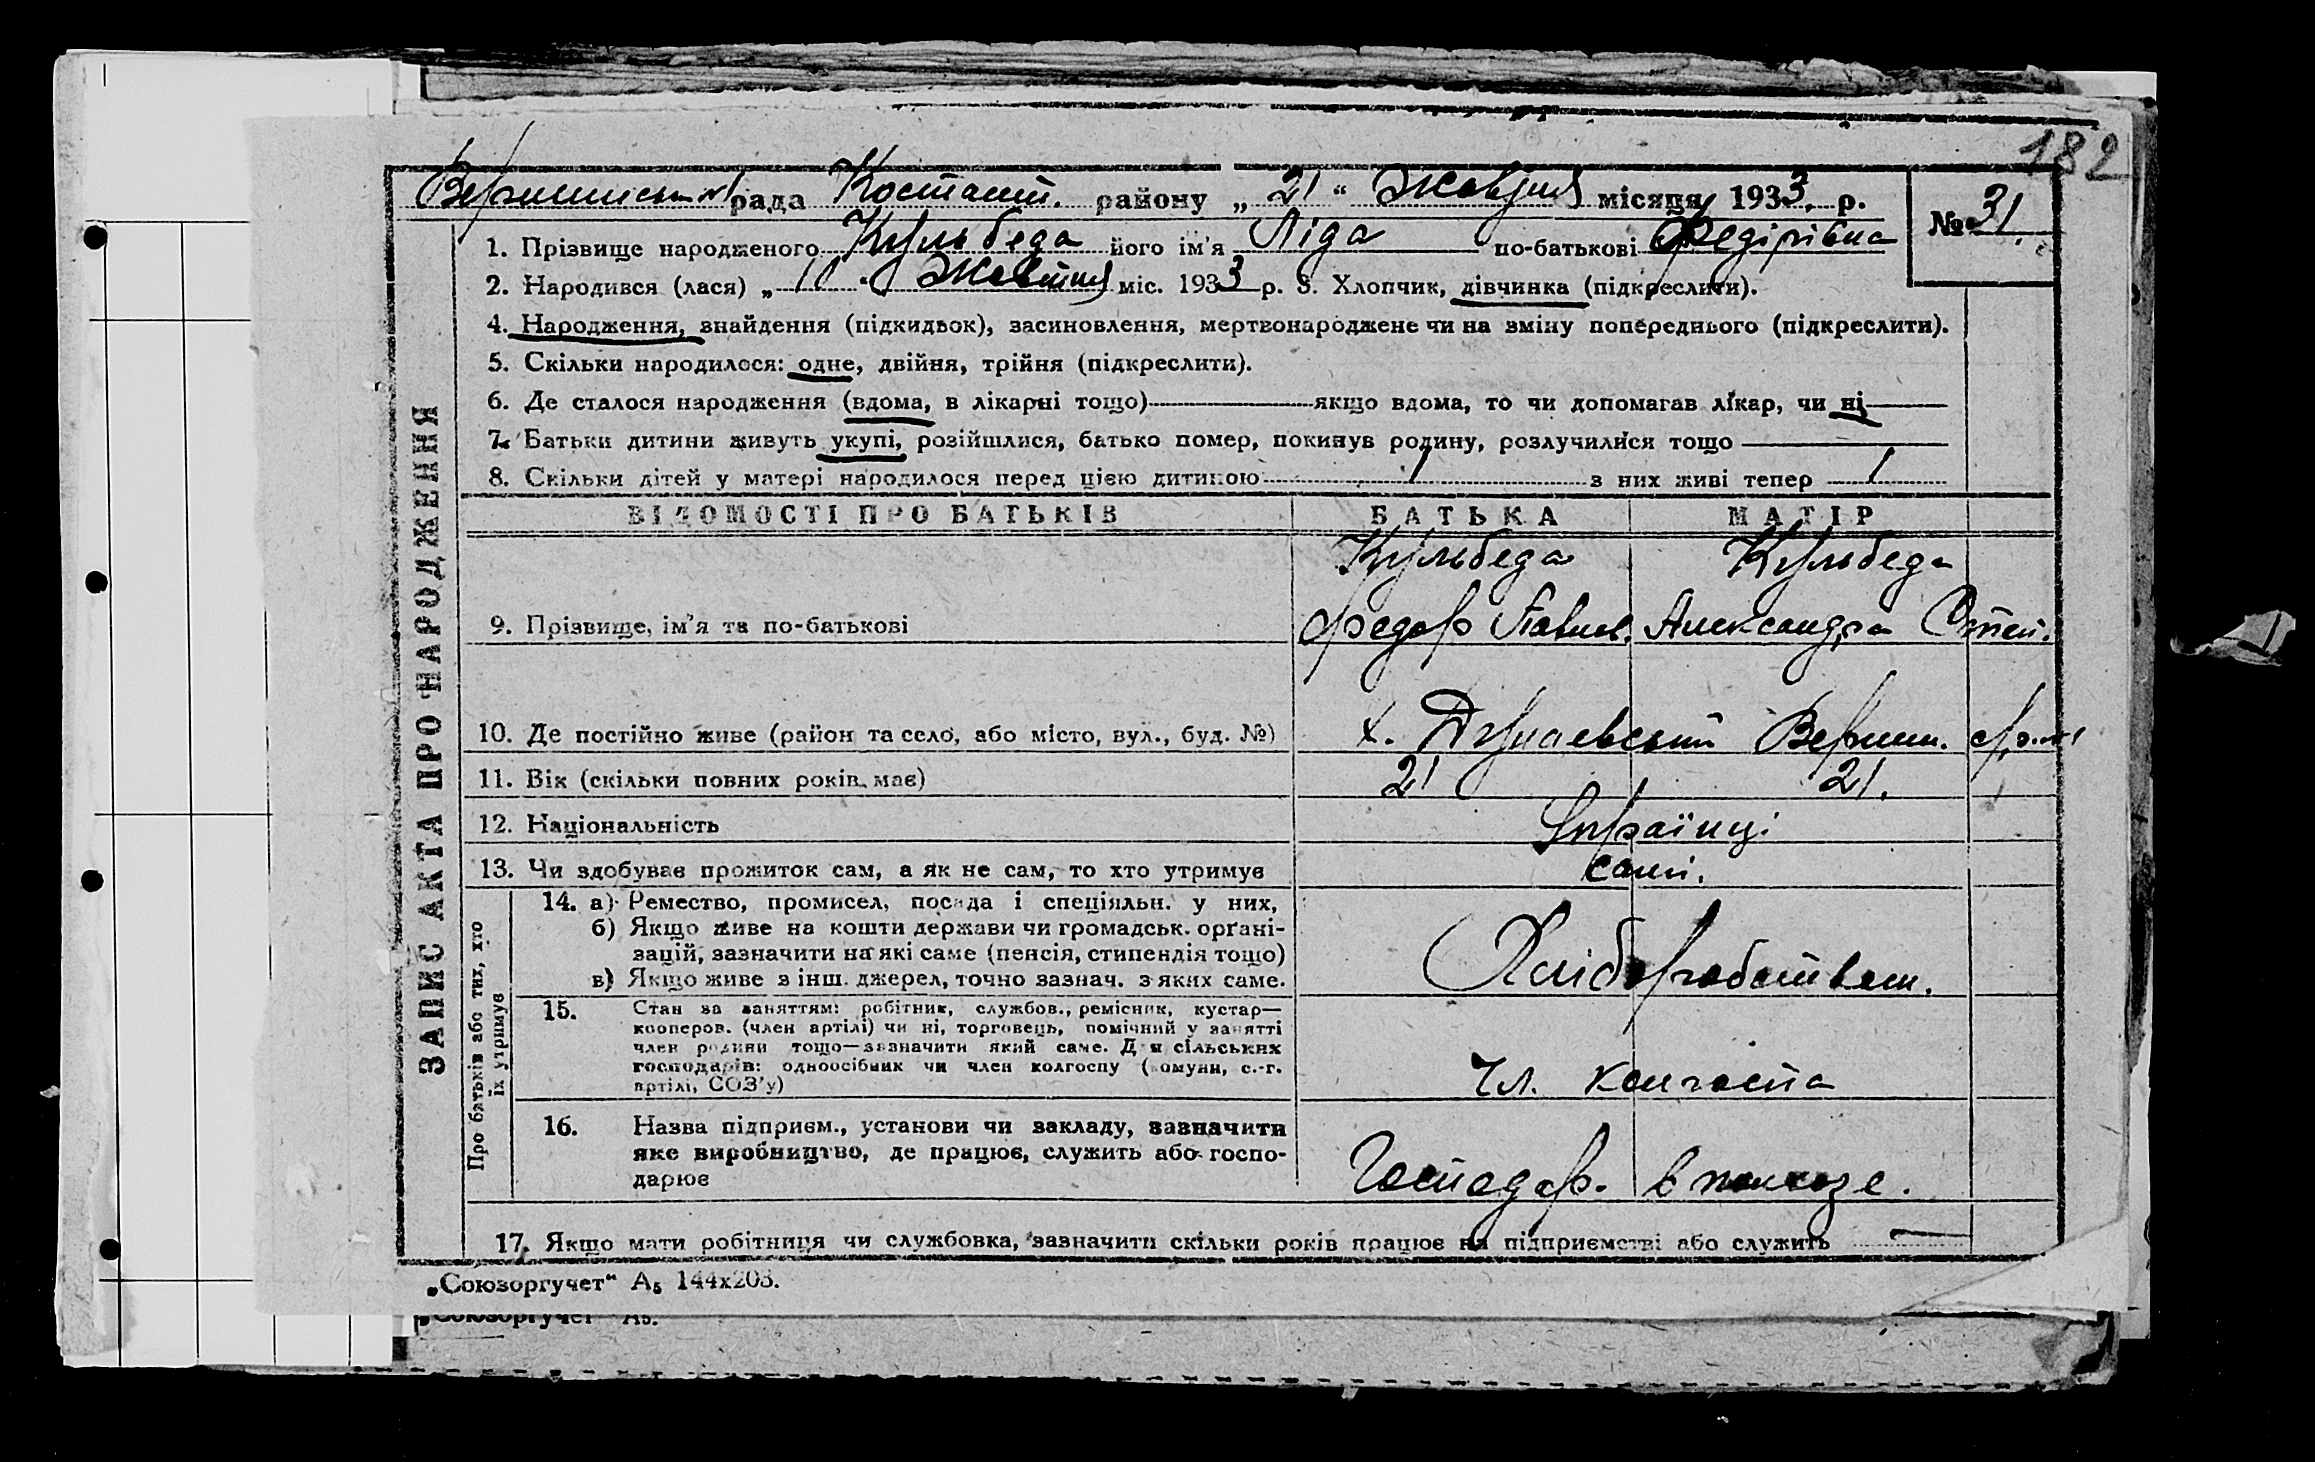 182
рада Костянт. району „ 21 “ Жовтня місяця 1933 р.
№ 31.
1. Прізвище народженого Кульбеда його ім'я Ліда по-батькові Федірівна
2. Народився (лася) „ “ Жовтня міс. 1933 р. 3. Хлопчик, дівчинка (підкреслити).
4. Народження, знайдення (підкидьок), засиновлення, мертвонароджене чи на зміну попереднього (підкреслити).
5. Скільки народилося: одне, двійня, трійня (підкреслити).
6. Де сталося народження (вдома, в лікарні тощо) якщо вдома, то чи допомагав лікар, чи ні
7. Батьки дитини живуть укупі, розійшлися, батько помер, покинув родину, розлучилися тощо
8. Скільки дітей у матері народилося перед цією дитиною 1 з них живі тепер 1
ЗАПИС АКТА ПРО НАРОДЖЕННЯ
ВІДОМОСТІ ПРО БАТЬКІВ БАТЬКА МАТІР
Кульбеда Кульбеда
9. Прізвище, ім'я та по-батькові Федор Павлов. Александра Степ.
10. Де постійно живе (район та село, або місто, вул., буд. №) х. Вершин.
11. Вік (скільки повних років має) 21 21.
12. Національність Українці
13. Чи здобуває прожиток сам, а як не сам, то хто утримує сами.
Про батьків або тих, хто
їх утримує
14. а) Ремество, промисел, посада і спеціяльн. у них,
б) Якщо живе на кошти держави чи громадськ. орґані-
зацій, зазначити на які саме (пенсія, стипендія тощо)
в) Якщо живе з інш. джерел, точно зазнач. з яких саме.
Хліборобством.
15. Стан за заняттям: робітник, службов., ремісник, кустар—
кооперов. (член артілі) чи ні, торговець, помічний у занятті
член родини тощо—зазначити який саме. Для сільських
господарів: одноосібник чи член колгоспу (комуни, с.-г.
артілі, СОЗ'у)
Чл. колгоспа
16. Назва підприєм., установи чи закладу, зазначити
яке виробництво, де працює, служить або госпо-
дарює
Господар. в колхозе.
17. Якщо мати робітниця чи службовка, зазначити скільки років працює на підприємстві або служить
„Союзоргучет“ А5 144х203.
„Союзоргучет“ А5.